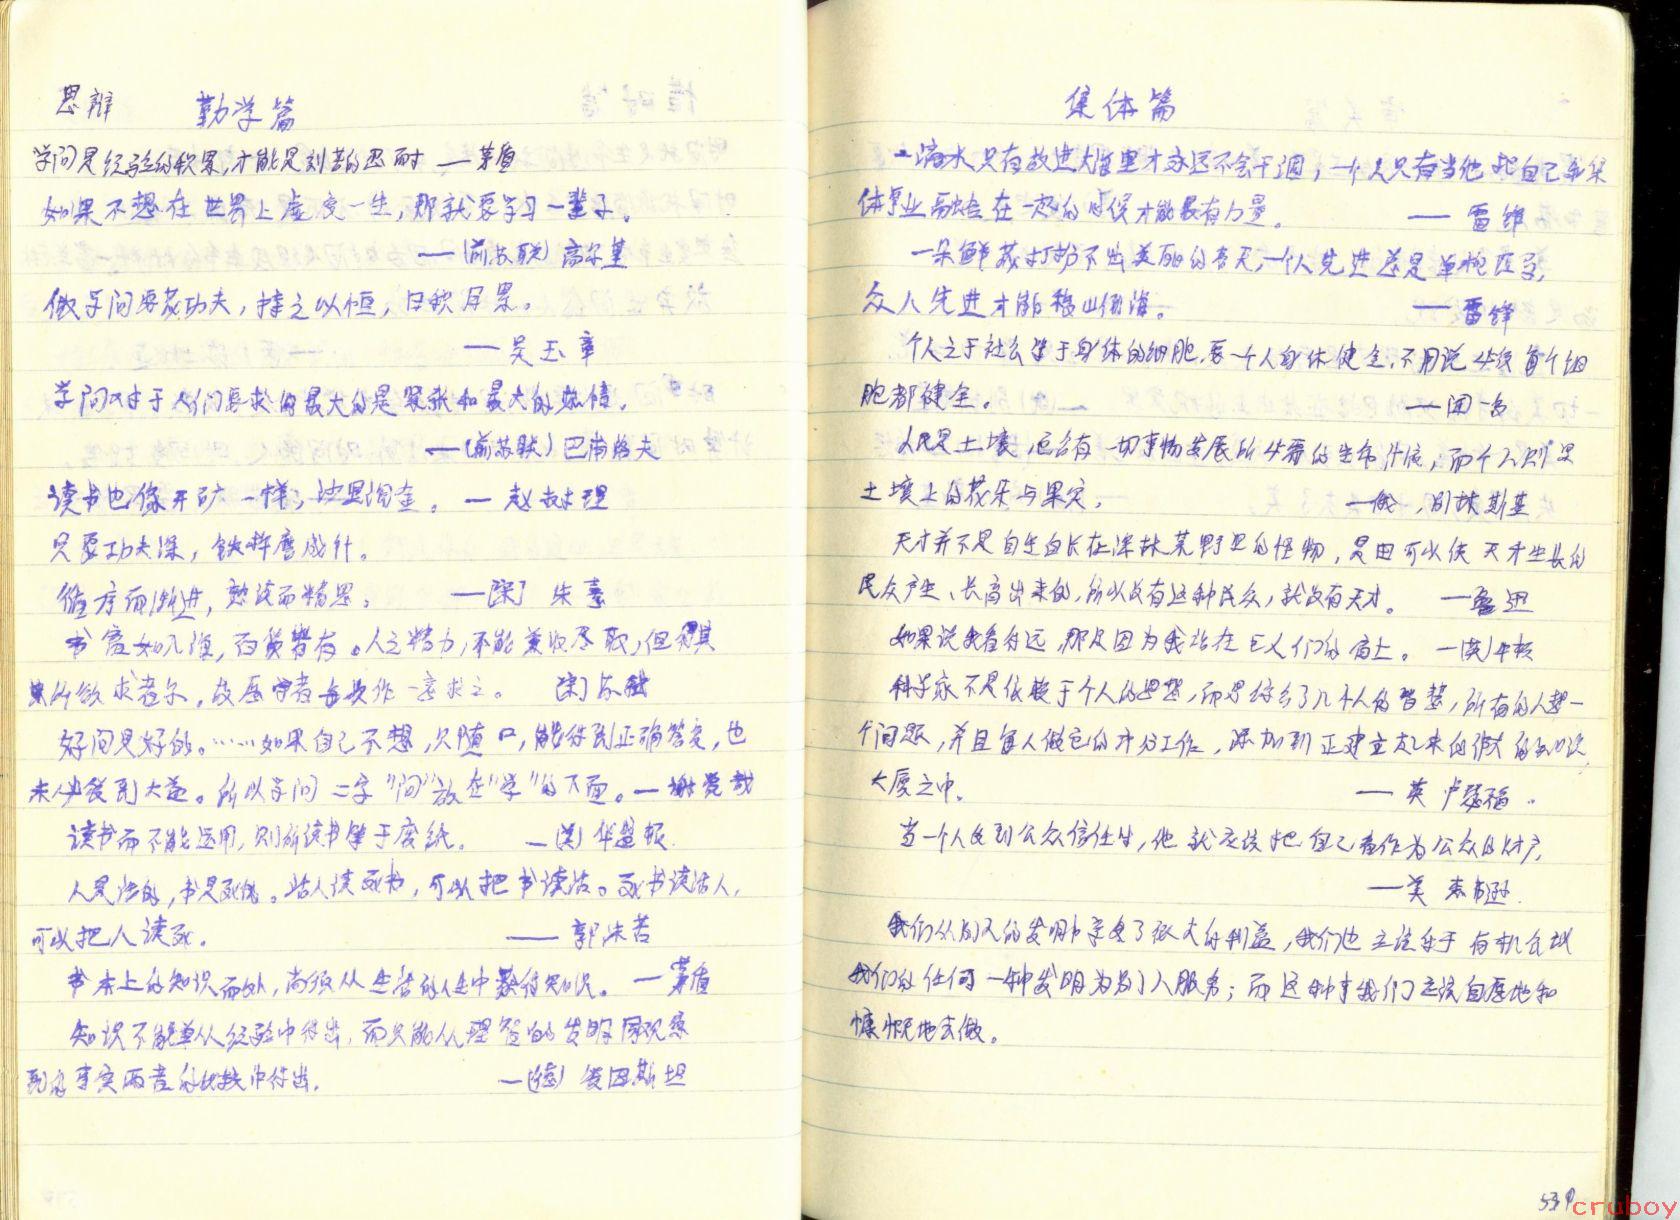 思辩 勤学篇
学问是经验的积累,才能是刻苦的忍耐 —茅盾
如果不想在世界上虚度一生,那就要学习一辈子。
—(前苏联)高尔基
做学问要花功夫,持之以恒,日积月累。
—吴玉章
学问对于人们要求的最大的是紧张和最大的热情。
—(前苏联)巴甫洛夫
读书也像开矿一样,沙里淘金。—赵树理
只要功夫深,铁杵磨成针。
循序而渐进,熟读而精思。 —[宋] 朱熹
书富如入海,百货皆有。人之精力,不能兼收尽取,但得其
所欲求者尔。故愿学者每次作一意求之。 [宋]苏轼
好问是好的。……如果自己不想,只随口,能得到正确答复,也
未必受到大益。所以学问二字"问"放在"学"的下面。—谢觉哉
读书而不能运用,则所读书等于废纸。 —(美)华盛顿.
人是活的,书是死的。活人读死书,可以把书读活。死书读活人,
可以把人读死。 ——郭沫若
书本上的知识而外,尚须从生活的人生中获得知识。—茅盾
知识不能单从经验中得出,而只能从理智的发明同观察
到的事实两者的比较中得出。 —(德)爱因斯坦
集体篇
一滴水只有放进大海里才永远不会干涸,一个人只有当他把自己和集
体事业融合在一起的时候才能最有力量。 —雷锋
一朵鲜花打扮不出美丽的春天,一个人先进总是单枪匹马,
众人先进才能移山倒海。 —雷锋
个人之于社会等于身体的细胞,要一个人身体健全,不用说必须每个细
胞都健全。 —闻一多
人民是土壤,它含有一切事物发展所必需的生命汁液,而个人则是
土壤上的花朵与果实。 —俄,别林斯基
天才并不是自生自长在深林荒野里的怪物,是由可以使天才生长的
民众产生、长育出来的,所以没有这种民众,就没有天才。 —鲁迅
如果说我看得远,那是因为我站在巨人们的肩上。 —(英)牛顿
科学家不是依赖于个人的思想,而是综合了几千人的智慧,所有的人想一
个问题,并且每人做它的部分工作,添加到正建立起来的伟大的知识
大厦之中。 —英 卢瑟福.
当一个人受到公众信任时,他就应该把自己看作为公众的财产。
—美 杰弗逊.
我们从别人的发明中享受了很大的利益,我们也应该乐于有机会以
我们的任何一种发明为别人服务;而这种事我们应该自愿地和
慷慨地去做。
539
cruboy